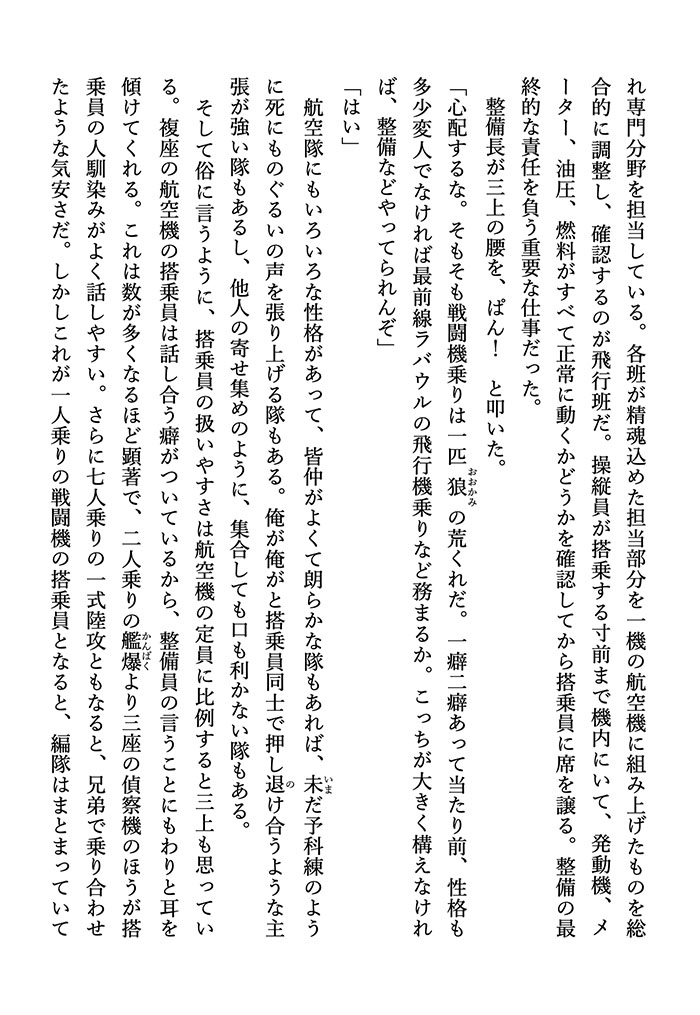 れ専門分野を担当している。各班が精魂込めた担当部分を一機の航空機に組み上げたものを総
合的に調整し、確認するのが飛行班だ。操縦員が搭乗する寸前まで機内にいて、発動機、メ
ーター、油圧、燃料がすべて正常に動くかどうかを確認してから搭乗員に席を譲る。整備の最
終的な責任を負う重要な仕事だった。
　整備長が三上の腰を、ぱん！　と叩いた。
「心配するな。そもそも戦闘機乗りは一匹狼おおかみの荒くれだ。一癖二癖あって当たり前、性格も
多少変人でなければ最前線ラバウルの飛行機乗りなど務まるか。こっちが大きく構えなけれ
ば、整備などやってられんぞ」
「はい」
　航空隊にもいろいろな性格があって、皆仲がよくて朗らかな隊もあれば、未いまだ予科練のよう
に死にものぐるいの声を張り上げる隊もある。俺が俺がと搭乗員同士で押し退のけ合うような主
張が強い隊もあるし、他人の寄せ集めのように、集合しても口も利かない隊もある。
　そして俗に言うように、搭乗員の扱いやすさは航空機の定員に比例すると三上も思ってい
る。複座の航空機の搭乗員は話し合う癖がついているから、整備員の言うことにもわりと耳を
傾けてくれる。これは数が多くなるほど顕著で、二人乗りの艦爆かんばくより三座の偵察機のほうが搭
乗員の人馴染みがよく話しやすい。さらに七人乗りの一式陸攻ともなると、兄弟で乗り合わせ
たような気安さだ。しかしこれが一人乗りの戦闘機の搭乗員となると、編隊はまとまっていて